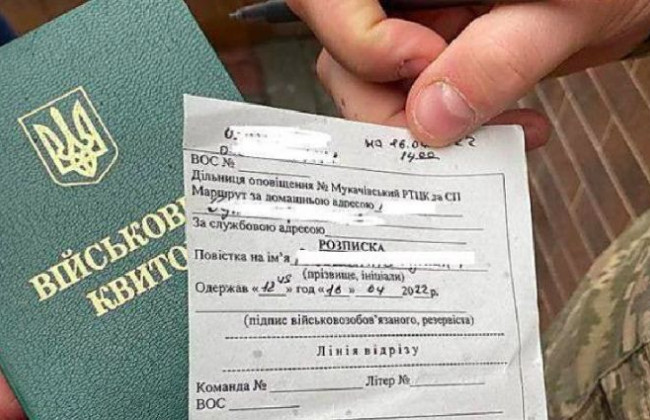 ВІЙСЬКОВ
КВИТО
на 16.0 22
14.00
ВОС №
Дільниця оповіщення № Мукачівський РТЦК за СП
Маршрут за домашньою адресою
За службовою адресою
РОЗПИСКА
Повістка на ім'я
(прізвище, ініціали)
Одержав «12 45» год «16» 04 2022р.
(підпис військовозобов'язаного, резервіста)
Лінія відрізу
Команда № Літер №
ВОС